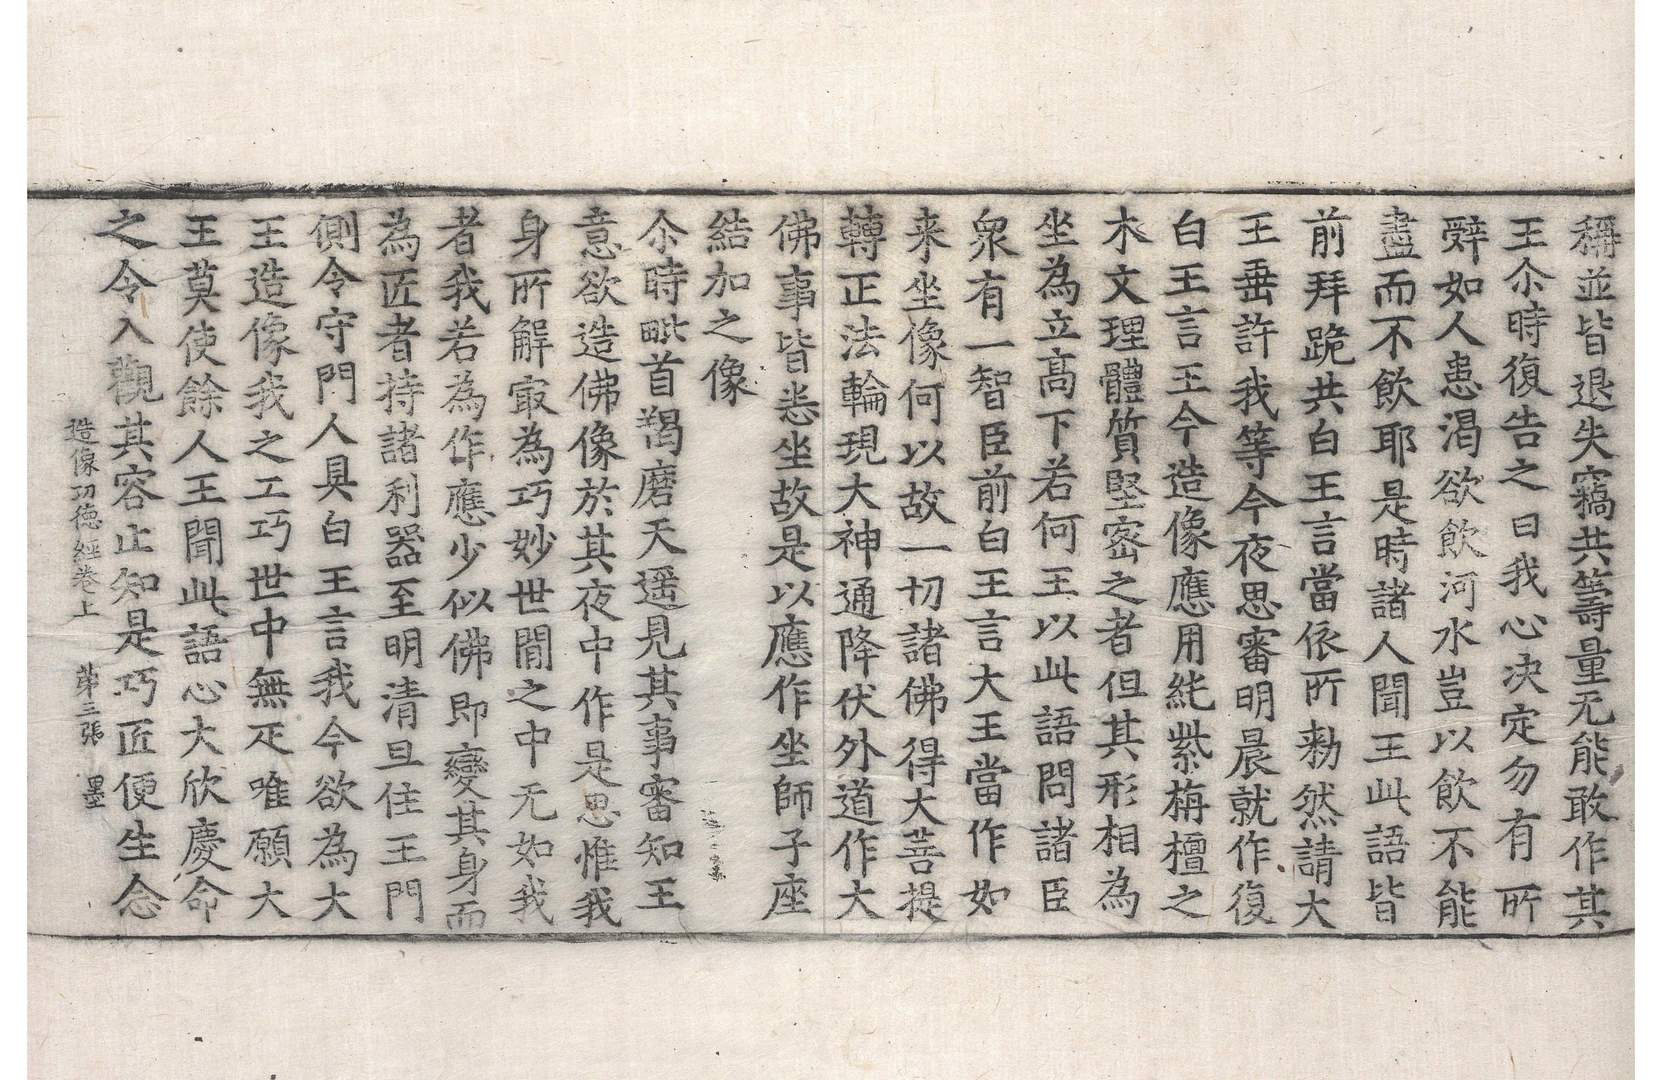 稱並皆退失竊共籌量无能敢作其
王尒時復告之曰我心決定勿有所
辤如人患渴欲飲河水豈以飲不能
盡而不飲耶是時諸人聞王此語皆
前拜跪共白王言當依所勑然請大
王垂許我等今夜思審明晨就作復
白王言王今造像應用純紫栴檀之
木文理體質堅密之者但其形相為
坐為立高下若何王以此語問諸臣
衆有一智臣前白王言大王當作如
来坐像何以故一切諸佛得大菩提
轉正法輪現大神通降伏外道作大
佛事皆悉坐故是以應作坐師子座
結加之像
尒時毗首羯磨天遥見其事審知王
意欲造佛像於其夜中作是思惟我
身所解㝡為巧妙世閒之中无如我
者我若為作應少似佛即變其身而
為匠者持諸利器至明清旦住王門
側令守門人具白王言我今欲為大
王造像我之工巧世中無疋唯願大
王莫使餘人王聞此語心大欣慶命
之令入觀其容止知是巧匠便生念
造像功德經卷上　第三張　墨